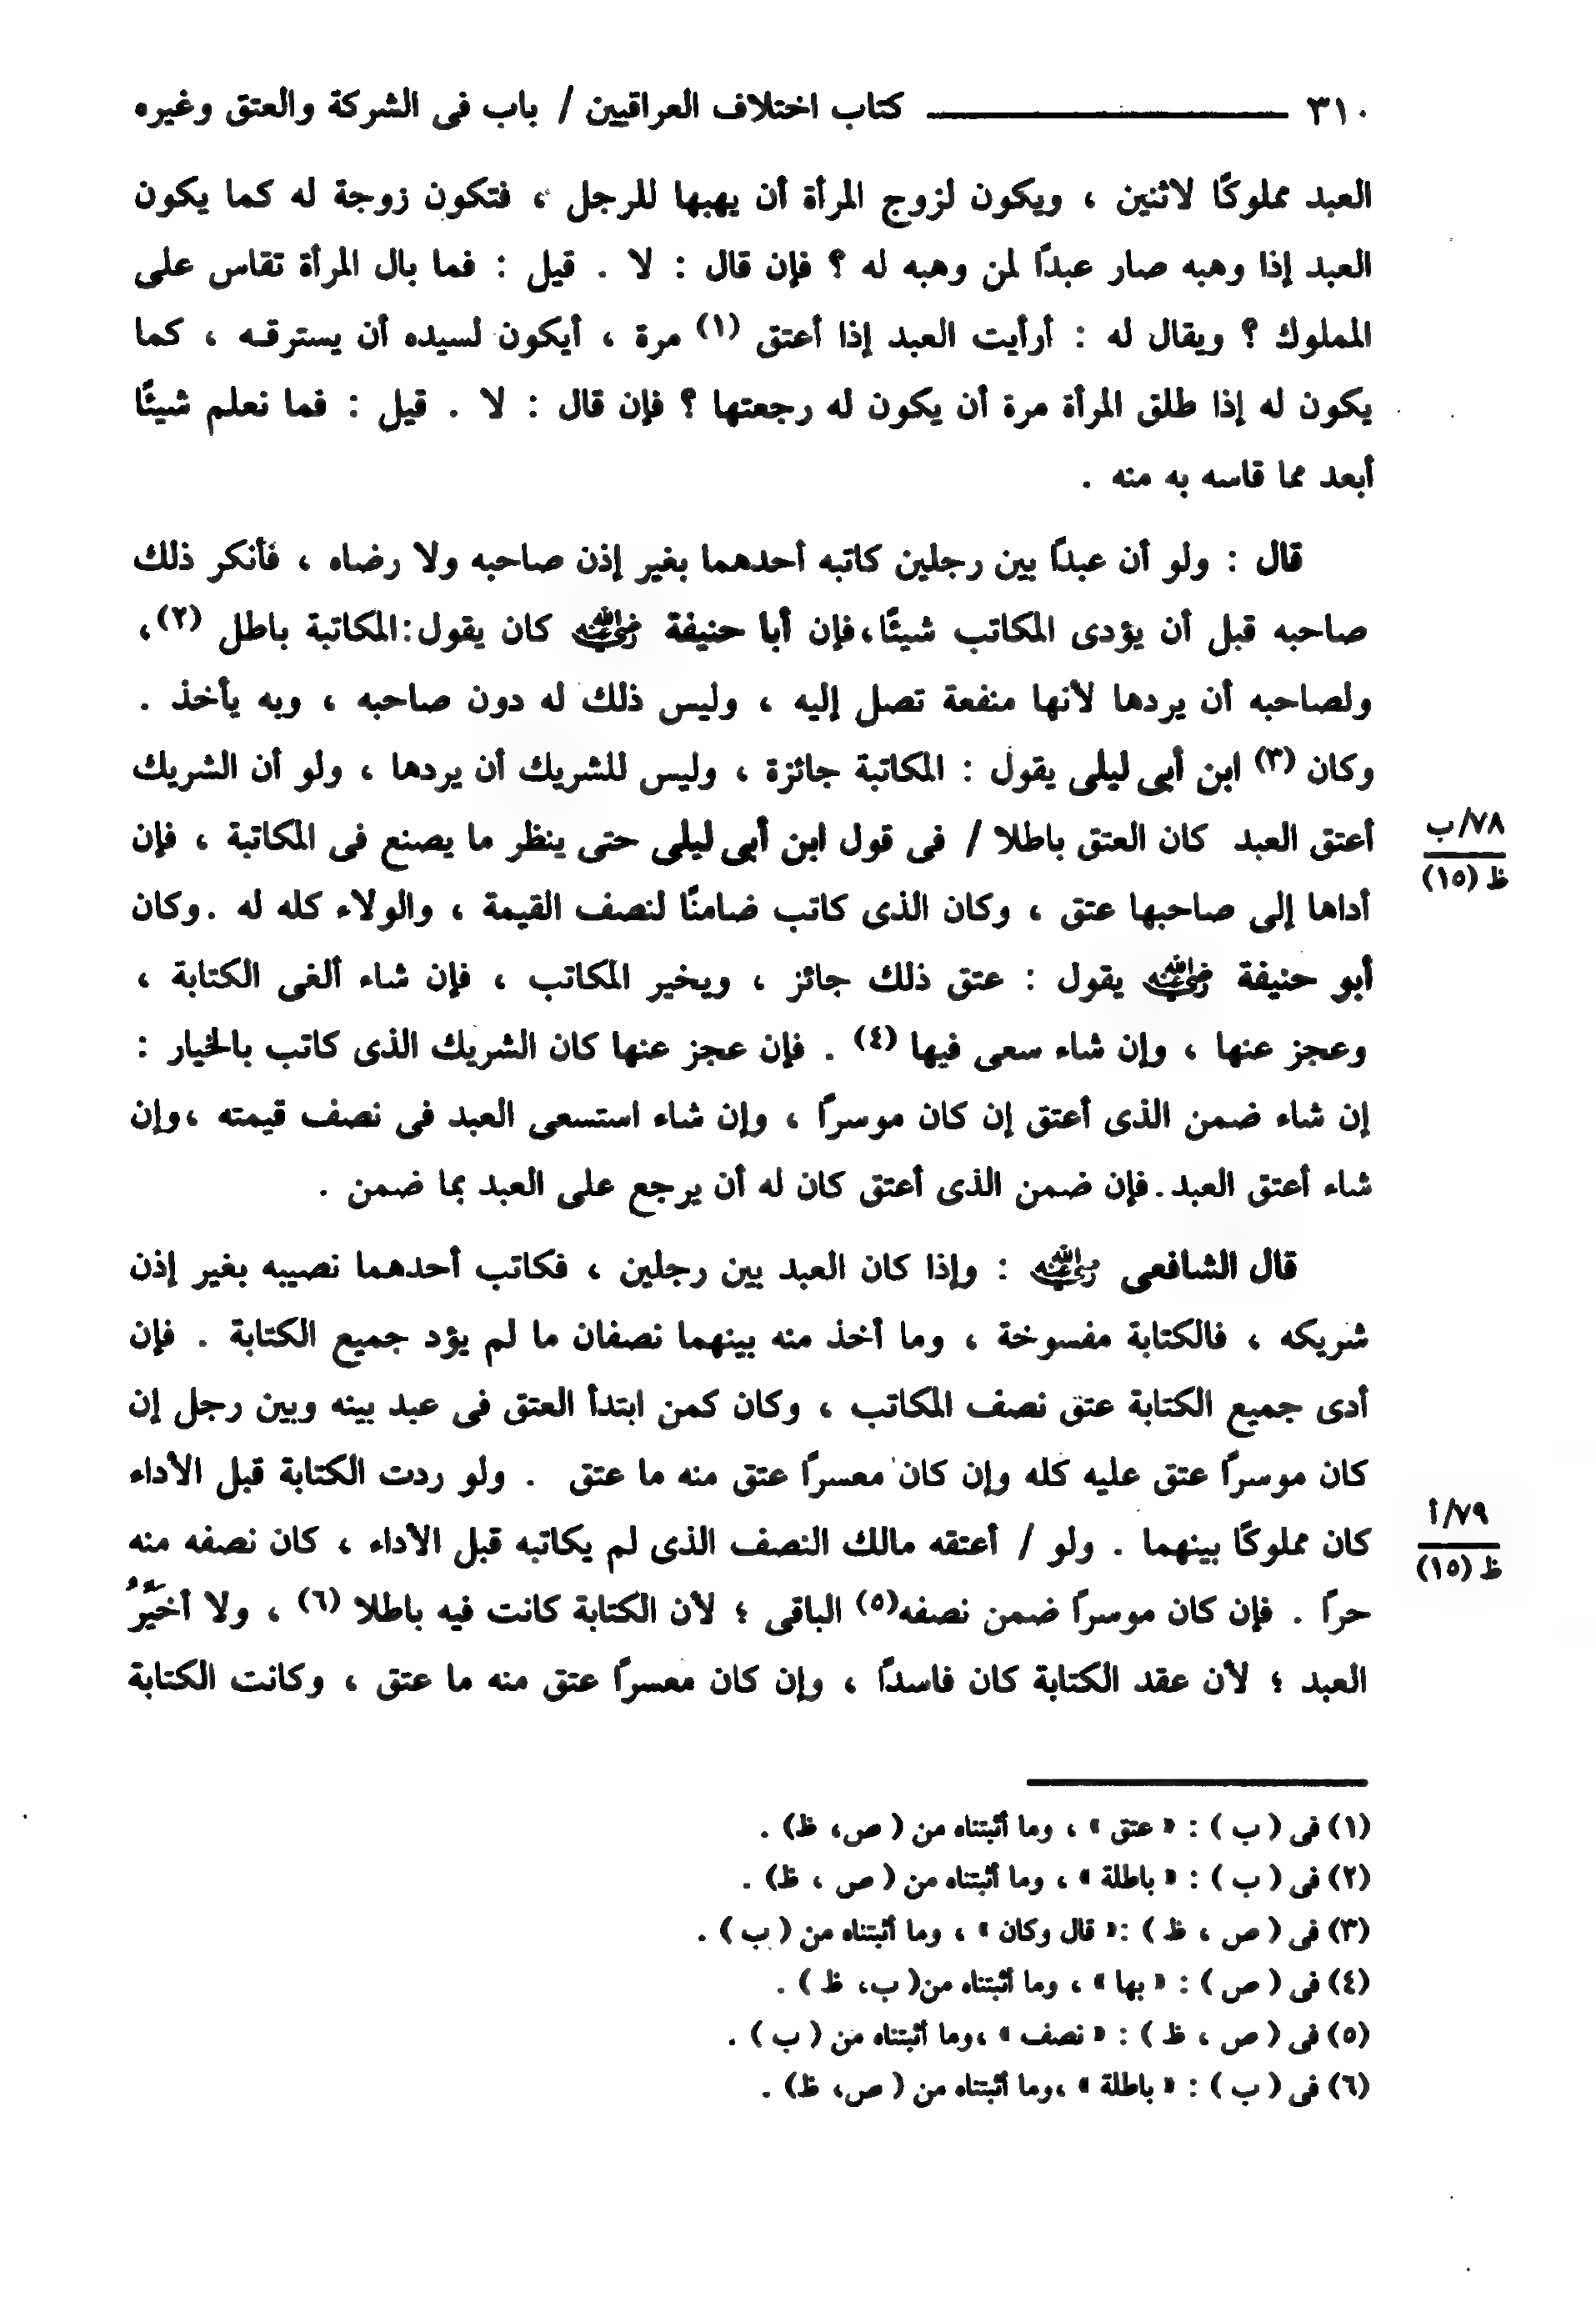 ٣١٠ ــــــــــــــــــ كتاب اختلاف العراقيين / باب فى الشركة والعتق وغيره
العبد مملوكًا لاثنين ، ويكون لزوج المرأة أن يهبها للرجل ، فتكون زوجة له كما يكون
العبد إذا وهبه صار عبدًا لمن وهبه له ؟ فإن قال : لا . قيل : فما بال المرأة تقاس على
المملوك ؟ ويقال له : أرأيت العبد إذا أعتق (١) مرة ، أيكون لسيده أن يسترقـه ، كما
يكون له إذا طلق المرأة مرة أن يكون له رجعتها ؟ فإن قال : لا . قيل : فما نعلم شيئًا
أبعد مما قاسه به منه .
قال : ولو أن عبدًا بين رجلين كاتبه أحدهما بغير إذن صاحبه ولا رضاه ، فأنكر ذلك
صاحبه قبل أن يؤدى المكاتب شيئًا، فإن أبا حنيفة رضي الله عنه كان يقول: المكاتبة باطل (٢)،
ولصاحبه أن يردها لأنها منفعة تصل إليه ، وليس ذلك له دون صاحبه ، وبه يأخذ .
وكان (٣) ابن أبى ليلى يقول : المكاتبة جائزة ، وليس للشريك أن يردها ، ولو أن الشريك
أعتق العبد كان العتق باطلا / فى قول ابن أبى ليلى حتى ينظر ما يصنع فى المكاتبة ، فإن
٧٨/ب
ظ (١٥)
أداها إلى صاحبها عتق ، وكان الذى كاتب ضامنًا لنصف القيمة ، والولاء كله له . وكان
أبو حنيفة رضي الله عنه يقول : عتق ذلك جائز ، ويخير المكاتب ، فإن شاء ألغى الكتابة ،
وعجز عنها ، وإن شاء سعى فيها (٤) . فإن عجز عنها كان الشريك الذى كاتب بالخيار :
إن شاء ضمن الذى أعتق إن كان موسرًا ، وإن شاء استسعى العبد فى نصف قيمته ، وإن
شاء أعتق العبد . فإن ضمن الذى أعتق كان له أن يرجع على العبد بما ضمن .
قال الشافعى رضي الله عنه : وإذا كان العبد بين رجلين ، فكاتب أحدهما نصيبه بغير إذن
شريكه ، فالكتابة مفسوخة ، وما أخذ منه بينهما نصفان ما لم يؤد جميع الكتابة . فإن
أدى جميع الكتابة عتق نصف المكاتب ، وكان كمن ابتدأ العتق فى عبد بينه وبين رجل إن
كان موسرًا عتق عليه كله وإن كان معسرًا عتق منه ما عتق . ولو ردت الكتابة قبل الأداء
كان مملوكًا بينهما . ولو / أعتقه مالك النصف الذى لم يكاتبه قبل الأداء ، كان نصفه منه
٧٩/أ
ظ (١٥)
حرًا . فإن كان موسرًا ضمن نصفه(٥) الباقى ؛ لأن الكتابة كانت فيه باطلا (٦) ، ولا أخَيِّرُ
العبد ؛ لأن عقد الكتابة كان فاسدًا ، وإن كان معسرًا عتق منه ما عتق ، وكانت الكتابة
(١) فى ( ب ) : « عتق » ، وما أثبتناه من ( ص، ظ) .
(٢) فى ( ب ) : « باطلة » ، وما أثبتناه من ( ص ، ظ) .
(٣) فى ( ص ، ظ ) :« قال وكان » ، وما أثبتناه من ( ب ) .
(٤) فى ( ص ) : « بها » ، وما أثبتناه من( ب، ظ ) .
(٥) فى ( ص ، ظ ) : « نصف » ،وما أثبتناه من ( ب ) .
(٦) فى ( ب ) : « باطلة » ،وما أثبتناه من ( ص، ظ) .